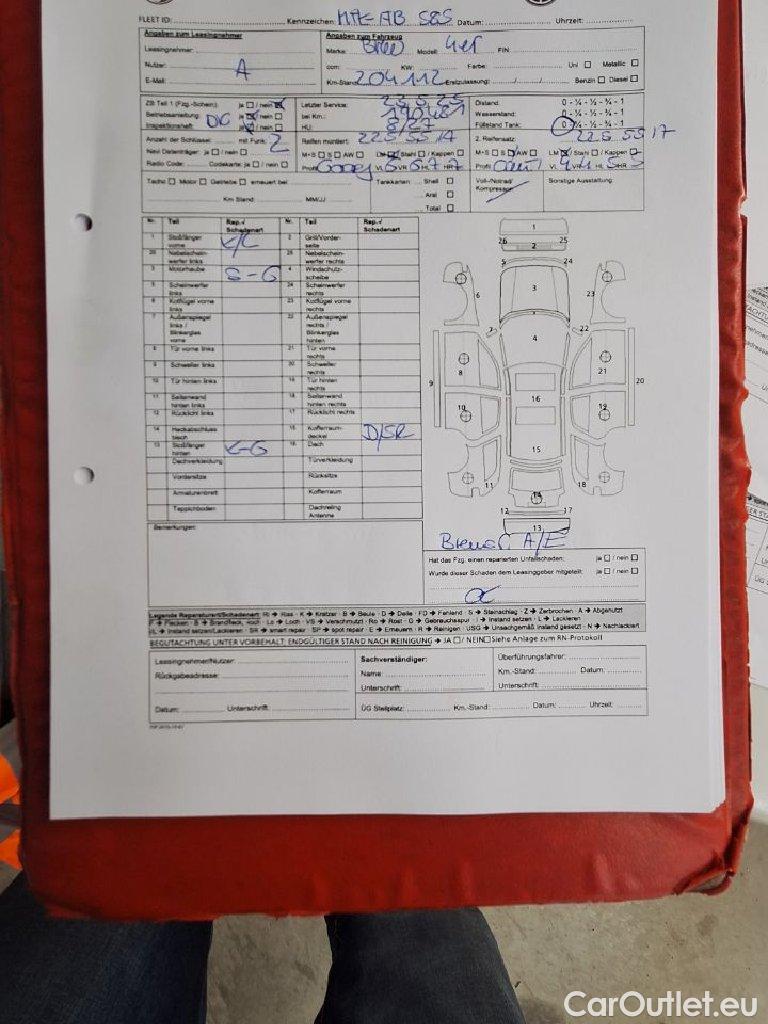 FLEET ID: Kennzeichen: MTK-AB 585 Datum: Uhrzeit:
Angaben zum Leasingnehmer
Angaben zum Fahrzeug
Leasingnehmer: Marke: Modell: 4er FIN
Nutzer: A ccm: KW: Farbe: Uni Metallic
E-Mail: Km-Stand 204112 Erstzulassung: Benzin Diesel
ZB Teil 1 (Fzg.-Schein): ja / nein Letzter Service: 23.5.25 Ölstand: 0 - ¼ - ½ - ¾ - 1
Betriebsanleitung: ja / nein bei Km.: Wasserstand: 0 - ¼ - ½ - ¾ - 1
Inspektionsheft: ja / nein HU: 8/27 Füllstand Tank: 0 - ¼ - ½ - ¾ - 1
Anzahl der Schlüssel: mit Funk: 2 Reifen montiert: 225 55 17 2. Reifensatz: 225 55 17
Navi Datenträger: ja / nein M+S S AW LM Stahl / Kappen M+S S AW LM Stahl / Kappen
Radio Code: Codekarte: ja / nein Profil VL 6 VR 6 HL 7 HR 7 Profil VL 4 VR 4 HL 5 HR 5
Tacho Motor Getriebe erneuert bei Tankkarten: Shell Voll-/Notrad/ Sonstige Ausstattung:
Aral Kompressor
Km Stand: MM/JJ Total
Nr. Teil Rep./ Schadenart Nr. Teil Rep./ Schadenart
1 Stoßfänger vorne K/L 2 Grill/Vorderseite
26 Nebelscheinwerfer links 25 Nebelscheinwerfer rechts
3 Motorhaube S-G 4 Windschutzscheibe
5 Scheinwerfer links 24 Scheinwerfer rechts
6 Kotflügel vorne links 23 Kotflügel vorne rechts
7 Außenspiegel links / Blinkerglas vorne 22 Außenspiegel rechts / Blinkerglas hinten
8 Tür vorne links 21 Tür vorne rechts
9 Schweller links 20 Schweller rechts
10 Tür hinten links 19 Tür hinten rechts
11 Seitenwand hinten links 18 Seitenwand hinten rechts
12 Rücklicht links 17 Rücklicht rechts
14 Heckabschlussblech 15 Kofferraumdeckel D/SR
13 Stoßfänger hinten K-G 16 Dach
Dachverkleidung Türverkleidung
Vordersitze Rücksitze
Armaturenbrett Kofferraum
Teppichboden Dachreling Antenne
1
26 2 25
5 24
6 3 23
7 4 22
8 21
9 16 20
10 19
15
11 18
14
12 17
13
Bemerkungen:
A/E
Hat das Fzg. einen reparierten Unfallschaden: ja / nein
Wurde dieser Schaden dem Leasinggeber mitgeteilt: ja / nein
Legende Reparaturart/Schadenart: Ri → Riss · K → Kratzer · B → Beule · D → Delle · FD → Fehlend · S → Steinschlag · Z → Zerbrochen · A → Abgenutzt
F → Flecken · B → Brandfleck, -loch · Lo → Loch · VS → Verschmutzt · Ro → Rost · G → Gebrauchsspur · I → Instand setzen · L → Lackieren
I/L → Instand setzen/Lackieren · SR → smart repair · SP → spot repair · E → Erneuern · R → Reinigen · USG → Unsachgemäß instand gesetzt · N → Nachlackiert
BEGUTACHTUNG UNTER VORBEHALT: ENDGÜLTIGER STAND NACH REINIGUNG → JA / NEIN Siehe Anlage zum RN-Protokoll
Leasingnehmer/Nutzer: Sachverständiger: Überführungsfahrer:
Rückgabeadresse: Name: Km.-Stand: Datum:
Unterschrift: Unterschrift:
Datum: Unterschrift: ÜG Stellplatz: Km.-Stand: Datum: Uhrzeit:
CarOutlet.eu